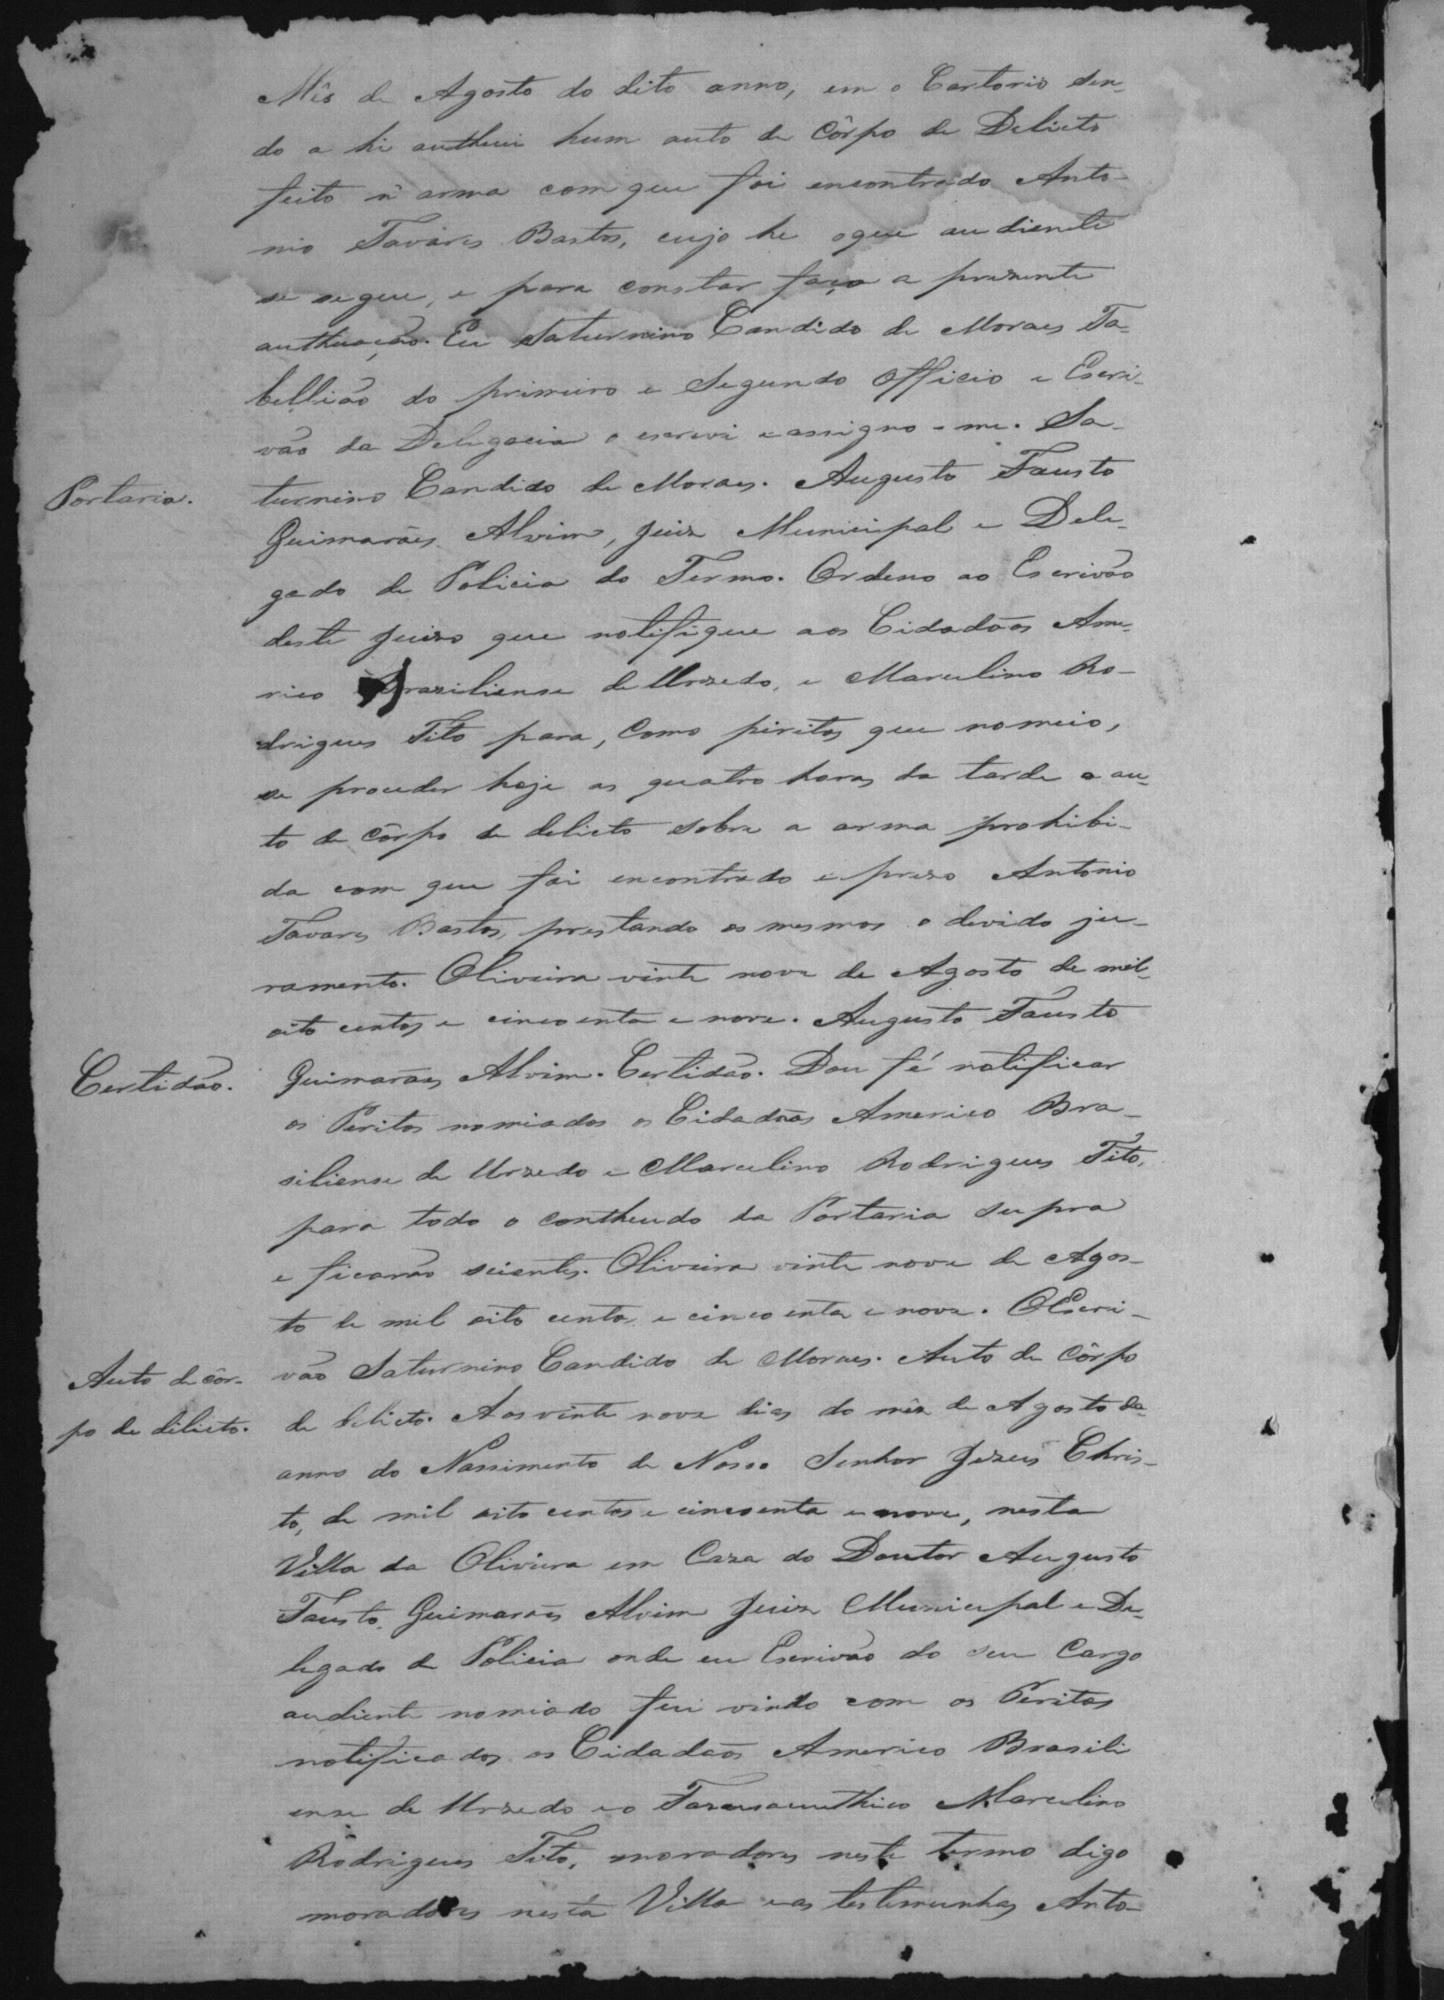 Mês de Agosto do dito anno, em o Cartorio sen-
do a hi authuei hum auto de Côrpo de Delicto
feito n'arma com que foi encontrado Anto-
nio Tavares Bastos, cujo he o que au diente
se segue, e para constar faço a prezente
authuação. Eu Saturnino Candido de Moraes Ta-
bellião do primeiro e Segundo Officio e Escri-
vão da Delegacia o escrevi e assigno-me. Sa-
Portaria.
turnino Candido de Moraes. Augusto Fausto
Guimarães Alvim, Juiz Municipal e Dele-
gado de Policia do Termo. Ordeno ao Escrivão
deste Juizo que notifique aos Cidadãos Ame-
rico Braziliense de Urzedo, e Marculino Ro-
drigues Tito para, como piritos que nomeio,
se proceder hoje as quatro horas da tarde a au-
to de Côrpo de delicto sobre a arma prohibi-
da com que foi encontrado e prezo Antonio
Tavares Bastos, prestando os mesmos o devido ju-
ramento. Oliveira vinte nove de Agosto de mil
oito centos e cincoenta e nove. Augusto Fausto
Certidão.
Guimarães Alvim. Certidão. Dou fé notificar
os Peritos nomiados os Cidadãos Americo Bra-
siliense de Urzedo e Marculino Rodrigues Tito,
para todo o contheudo da Portaria supra
e ficarão scientes. Oliveira vinte nove de Agos-
to de mil oito centos e cincoenta e nove. O Escri-
Auto de côr-
po de dilicto.
vão Saturnino Candido de Moraes. Auto de Côrpo
de delicto. Aos vinte nove dias do mêz de Agosto do
anno do Nassimento de Nosso Senhor Jezus Chris-
to, de mil oito centos e cincoenta e nove, nesta
Villa da Oliveira em Caza do Doutor Augusto
Fausto Guimarães Alvim Juiz Municipal e De-
legado de Policia onde eu Escrivão do seu Cargo
audiente nomiado fui vindo com os Peritos
notificados os Cidadãos Americo Brasili
ense de Urzedo e o Marculino
Rodrigues Tito, moradores neste termo digo
moradores nesta Villa e as testemunhas Anto-